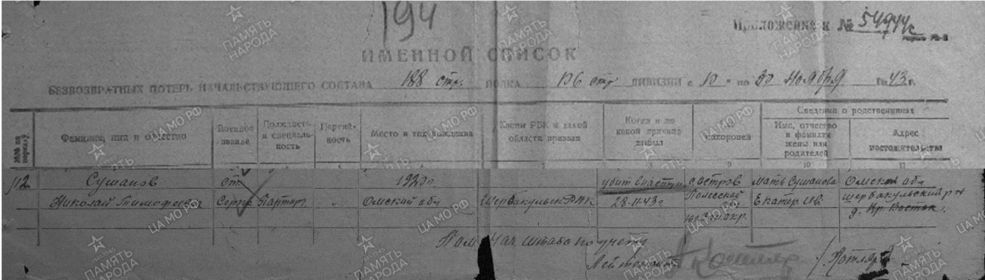 194
Приложение к № 54944с
ИМЕННОЙ СПИСОК
БЕЗВОЗВРАТНЫХ ПОТЕРЬ НАЧАЛЬСТВУЮЩЕГО СОСТАВА 188 стр. ПОЛКА 106 стр. ДИВИЗИИ с 10 по 30 Ноября 43 г.
Фамилия, имя и отчество
Воинское звание
Должность и специальность
Партийность
Место и год рождения
Каким РВК и какой области призван
Когда и по какой причине выбыл
Где похоронен
Сведения о родственниках
Имя, отчество и фамилия жены или родителей
Адрес местожительства
112 Сушанов ст. 1920 г. убит Мать Сушанова Омской обл
Николай Тимофеевич Серж. Парторг Омской обл Шербакульск РВК 28.11.43 г Полесской Екатер Ив. Шербакульский р-н
Пом. Нач. Штаба по учету
Котляр
ПАМЯТЬ НАРОДА
ЦАМО.РФ